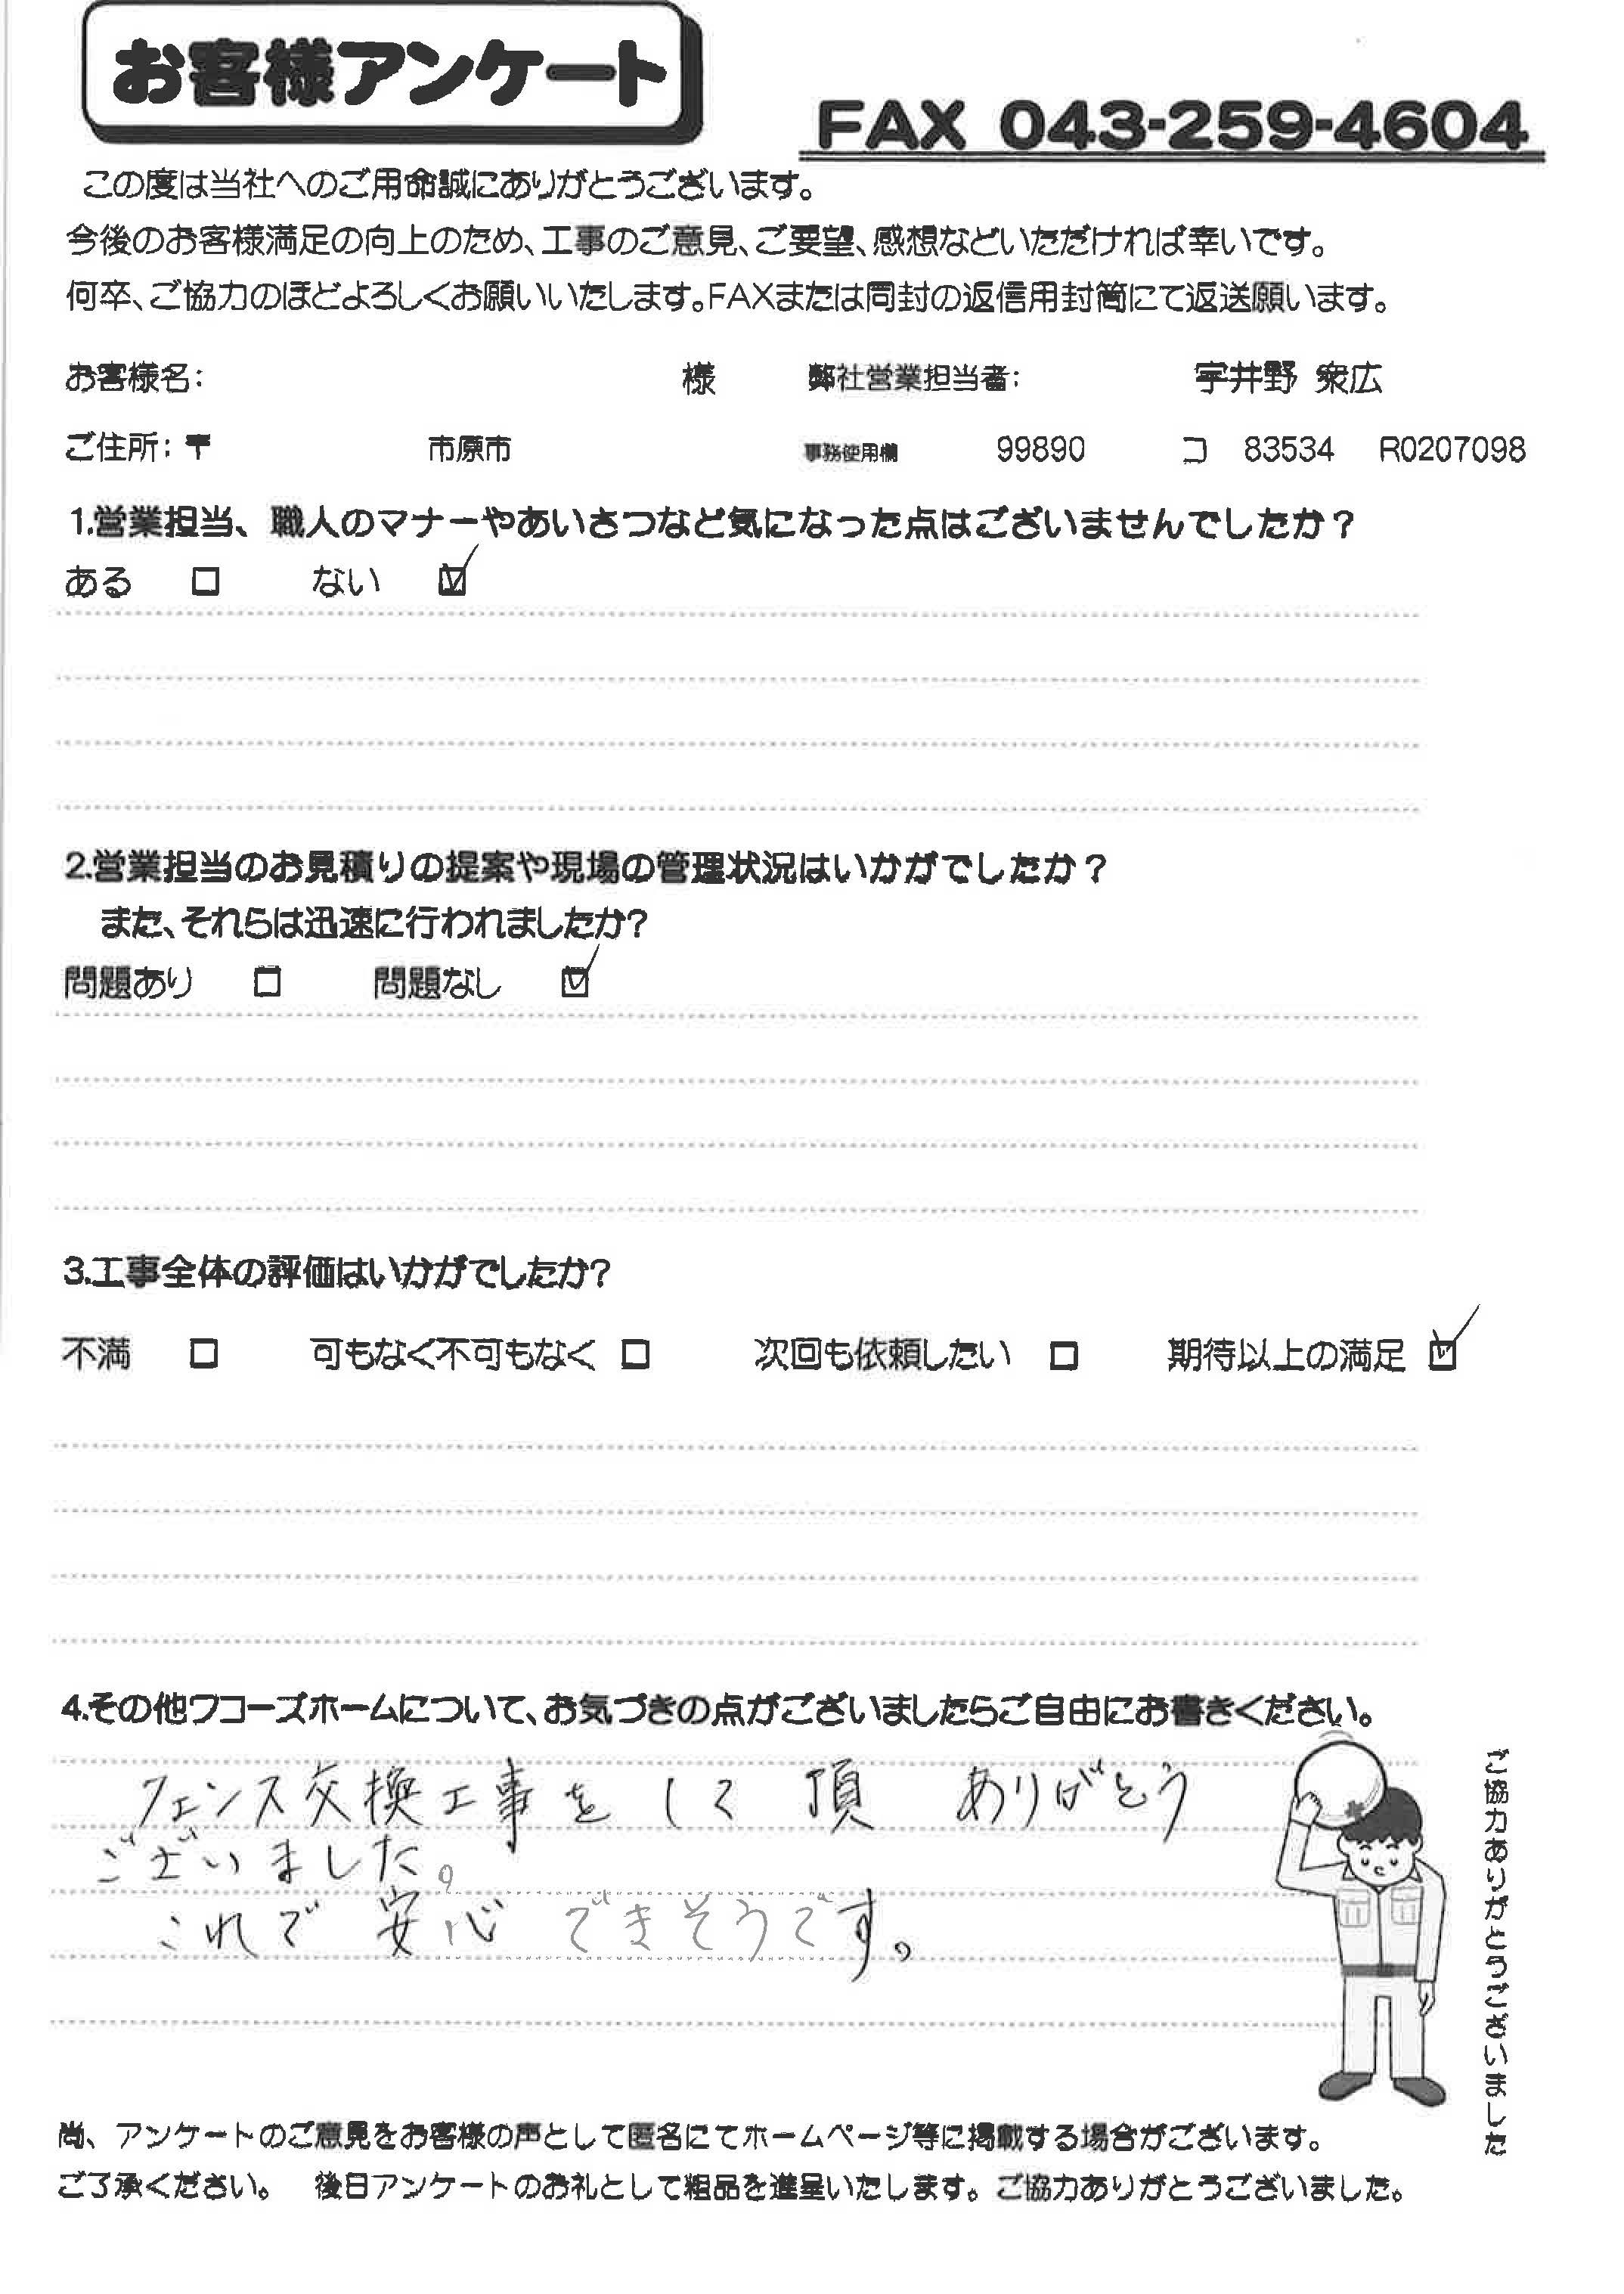 お客様アンケート
FAX 043-259-4604
この度は当社へのご用命誠にありがとうございます。
今後のお客様満足の向上のため、工事のご意見、ご要望、感想などいただければ幸いです。
何卒、ご協力のほどよろしくお願いいたします。FAXまたは同封の返信用封筒にて返送願います。
お客様名: 様 弊社営業担当者: 宇井野 衆広
ご住所: 〒 市原市 事務使用欄 99890 コ 83534 R0207098
1.営業担当、職人のマナーやあいさつなど気になった点はございませんでしたか？
ある □ ない ☑
2.営業担当のお見積りの提案や現場の管理状況はいかがでしたか？
また、それらは迅速に行われましたか?
問題あり □ 問題なし ☑
3.工事全体の評価はいかがでしたか?
不満 □ 可もなく不可もなく □ 次回も依頼したい □ 期待以上の満足 ☑
4.その他ワコーズホームについて、お気づきの点がございましたらご自由にお書きください。
フェンス交換工事をして頂 ありがとう
ございました。
これで安心できそうです。
ご協力ありがとうございました
尚、アンケートのご意見をお客様の声として匿名にてホームページ等に掲載する場合がございます。
ご了承ください。 後日アンケートのお礼として粗品を進呈いたします。ご協力ありがとうございました。